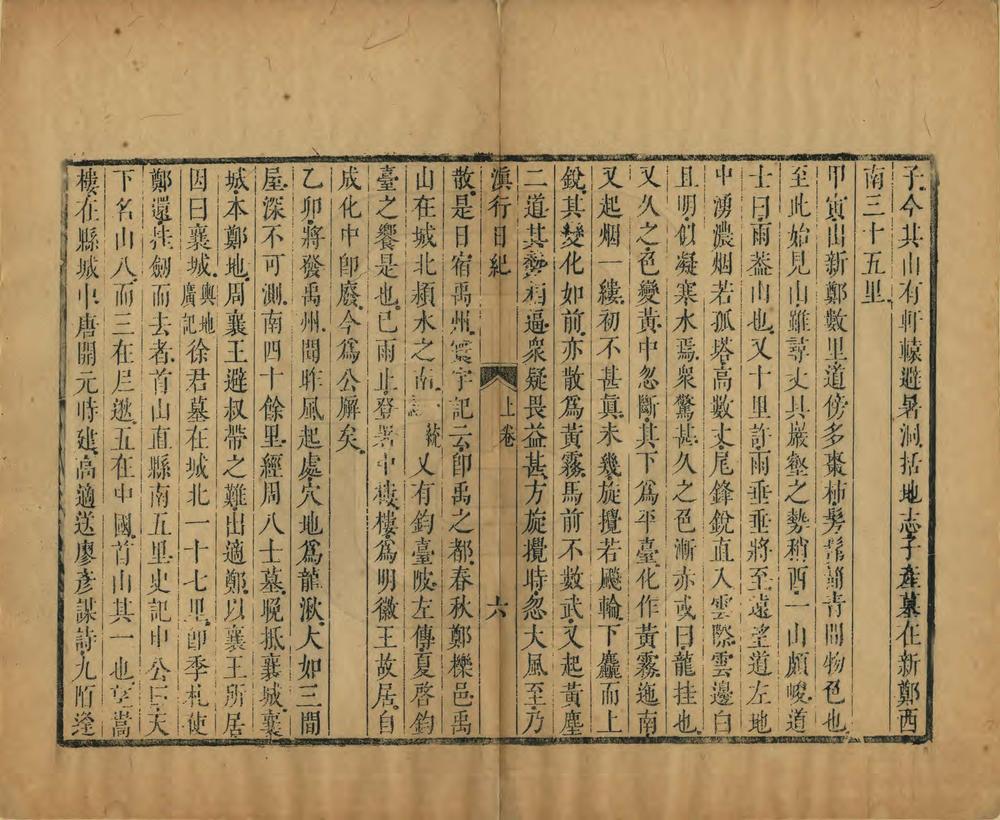 子今其山有軒轅避暑洞括地志子產墓在新鄭西
南三十五里
甲寅出新鄭數里道傍多棗柿髣髴青間物色也
至此始見山雖尋丈具巖壑之勢稍西一山頗峻道
士曰雨葢山也又十里許雨垂垂將至遠望道左地
中湧濃烟若孤塔高數丈尾鋒銳直入雲際雲邊白
且明似凝寒水焉衆驚甚久之色漸赤或曰龍挂也
又久之色變黃中忽斷其下爲平臺化作黃霧迤南
又起烟一縷初不甚眞未幾旋攪若飈輪下麤而上
銳其變化如前亦散爲黃霧馬前不數武又起黃塵
二道其勢相逼衆疑畏益甚方旋攪時忽大風至乃
滇行日紀 上卷 六
散是日宿禹州寰宇記云卽禹之都春秋鄭櫟邑禹
山在城北潁水之南 統 又有鈞臺陂左傳夏啓鈞
臺之饗是也已雨止登署中樓樓爲明徽王故居自
成化中卽廢今爲公廨矣
乙卯將發禹州聞昨風起處穴地爲龍湫大如三間
屋深不可測南四十餘里經周八士墓晚抵襄城襄
城本鄭地周襄王避叔帶之難出適鄭以襄王所居
因曰襄城輿地廣記徐君墓在城北一十七里卽季札使
鄭還挂劍而去者首山直縣南五里史記申公曰天
下名山八而三在蠻遨五在中國首山其一也莌嵩
樓在縣城中唐開元時建高適送廖彥謀詩九陌逢